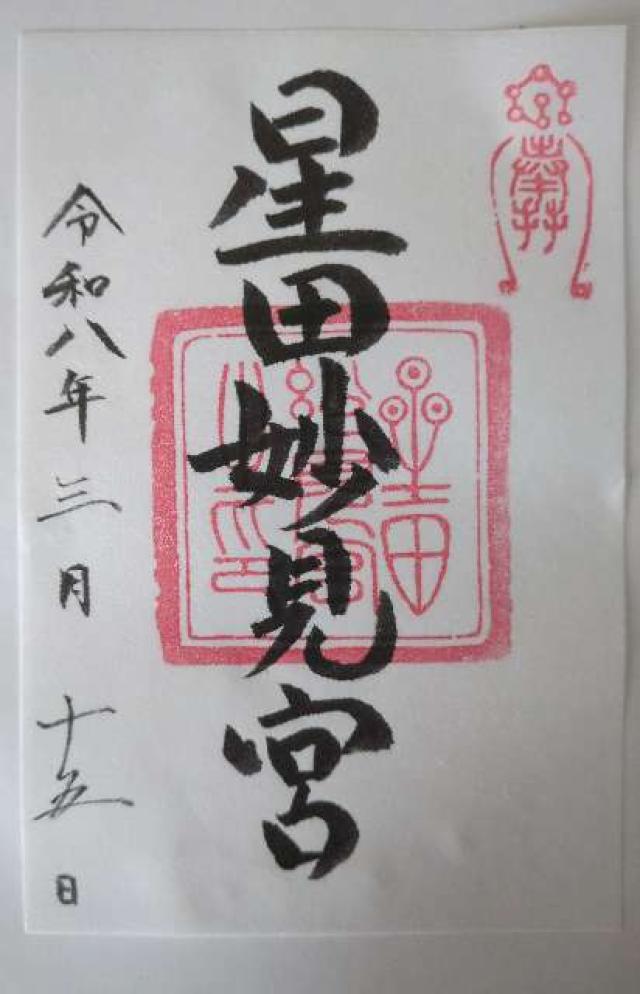 星田妙見宮
令和八年三月十五日